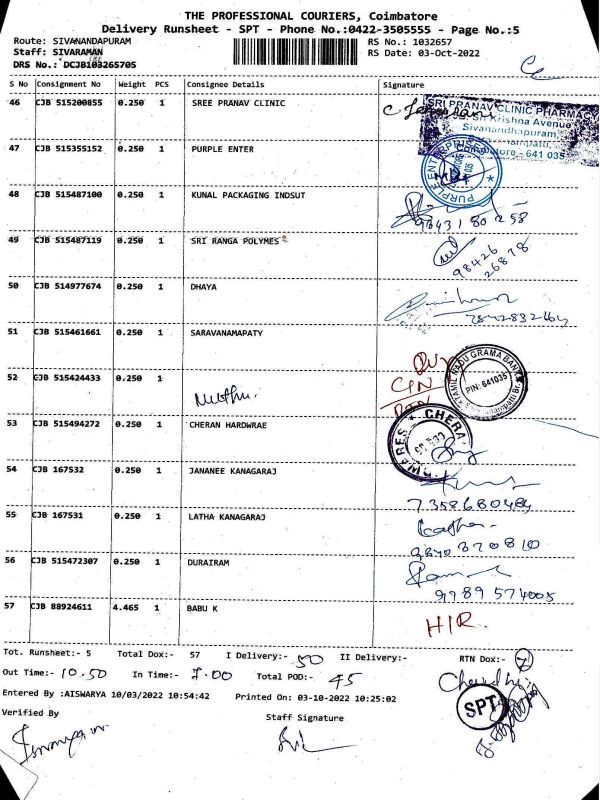 THE PROFESSIONAL COURIERS, Coimbatore
Delivery Runsheet - SPT - Phone No.:0422-3505555 - Page No.:5
Route: SIVANANDAPURAM
RS No.: 1032657
Staff: SIVARAMAN
RS Date: 03-Oct-2022
DRS No.: DCJB103265705
S No Consignment No Weight PCS Consignee Details Signature
46 CJB 515200855 0.250 1 SREE PRANAV CLINIC
SRI PRANAV CLINIC PHARMACY
Krishna Avenue
Sivanandhapuram,
- 641 035
47 CJB 515355152 0.250 1 PURPLE ENTER
PURPLE ENTERPRISES
48 CJB 515487100 0.250 1 KUNAL PACKAGING INDSUT
9843180258
49 CJB 515487119 0.250 1 SRI RANGA POLYMES
98426
26878
50 CJB 514977674 0.250 1 DHAYA
51 CJB 515461661 0.250 1 SARAVANAMAPATY
TAMIL NADU GRAMA BANK
PIN: 641035
52 CJB 515424433 0.250 1
Muthu.
53 CJB 515494272 0.250 1 CHERAN HARDWRAE
54 CJB 167532 0.250 1 JANANEE KANAGARAJ
7358680484
55 CJB 167531 0.250 1 LATHA KANAGARAJ
Latha.
56 CJB 515472307 0.250 1 DURAIRAM
9789574005
57 CJB 88924611 4.465 1 BABU K
H/R.
Tot. Runsheet:- 5 Total Dox:- 57 I Delivery:- 50 II Delivery:- RTN Dox:- 7
Out Time:- 10.50 In Time:- 7.00 Total POD:- 45
Entered By :AISWARYA 10/03/2022 10:54:42 Printed On: 03-10-2022 10:25:02
SPT
Verified By Staff Signature